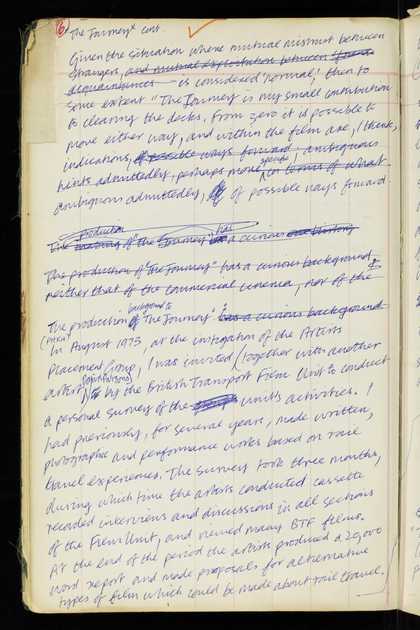 (6) "The Journey" cont.
Given the situation where mutual mistrust between
strangers, and mutual exploitation between friends
acquaintances — is considered 'normal', then to
some extent "The Journey" is my small contribution
to clearing the decks. From zero it is possible to
move either way, and within the film are, I think,
indications, of possible ways forward, ambiguous
hints admittedly, perhaps more specific, in terms of what
ambiguous admittedly, of possible ways forward.
production has
The making of "the Journey" has a curious
The production of "The Journey" has a curious background,
neither that of the commercial cinema, nor of the
background to
The production of "The Journey" has a curious background
In August 1975, at the instigation of the Artists
Placement Group, I was invited (together with another
artist) by the British Transport Film Unit to conduct
a personal survey of the unit's activities. I
had previously, for several years, made written,
photographic and performance works based on rail
travel experiences. The survey took three months,
during which time the artists conducted cassette
recorded interviews and discussions in all sections
of the Film Unit, and viewed many BTF films.
At the end of the period the artists produced a 29,000
word report and made proposals for alternative
types of film which could be made about rail travel.